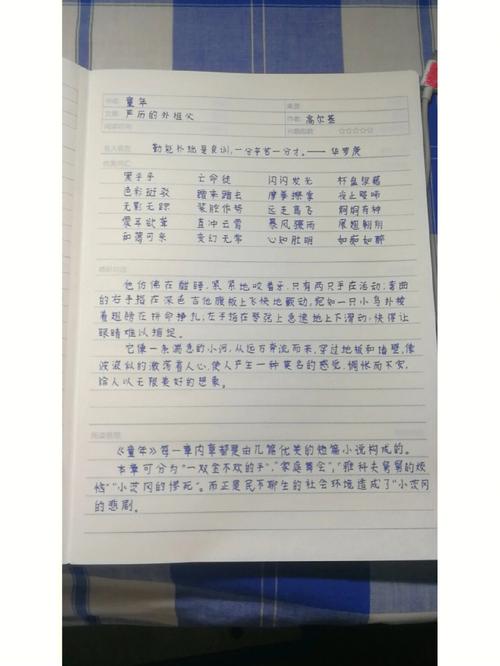 书名: 童年
文章: 严厉的外祖父 作者: 高尔基
阅读时间
名人名言 勤能补拙是良训,一分辛苦一分才。——华罗庚
优美词汇
黑乎乎 亡命徒 闪闪发光 杯盘狼藉
色彩斑驳 蹭来蹭去 摩拳擦掌
无影无踪 装腔作势 远走高飞 炯炯有神
震耳欲聋 直冲云霄 暴风骤雨 展翅翱翔
如饥可来 变幻无常 心知肚明 如痴如醉
他仿佛在酣睡,紧紧地咬着牙,只有两只手在活动:弯曲
的右手指在深色吉他腹板上飞快地颤动,宛如一只小鸟扑棱
着翅膀在拼命挣扎;左手指在琴弦上急速地上下滑动,快得让
眼睛难以捕捉。
它像一条湍急的小河,从远方奔流而来,穿过地板和墙壁,像
波浪似的激荡着人心,使人产生一种莫名的感觉,惆怅而不安,
给人以无限美好的想象。
阅读感悟
《童年》每一章内容都是由几篇优美的短篇小说构成的。
本章可分为“一双金不换的手”,“家庭舞会”,“雅科夫舅舅的烦
恼”“小茨冈的惨死”。而正是民不聊生的社会环境造成了“小茨冈
的悲剧。